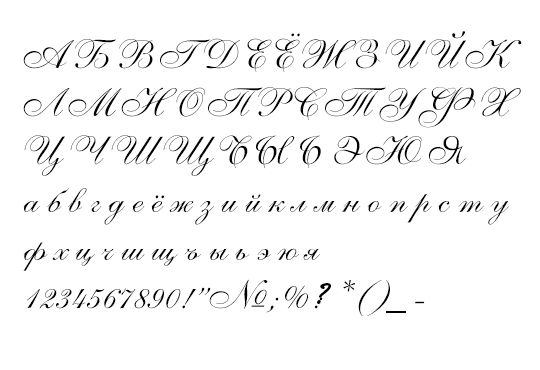 А Б В Г Д Е Ё Ж З И Й К
Л М Н О П Р С Т У Ф Х
Ц Ч Ш Щ Ъ Ы Ь Э Ю Я
а б в г д е ё ж з и й к л м н о п р с т у
ф х ц ч ш щ ъ ы ь э ю я
1234567890!"№;%? *()_ -